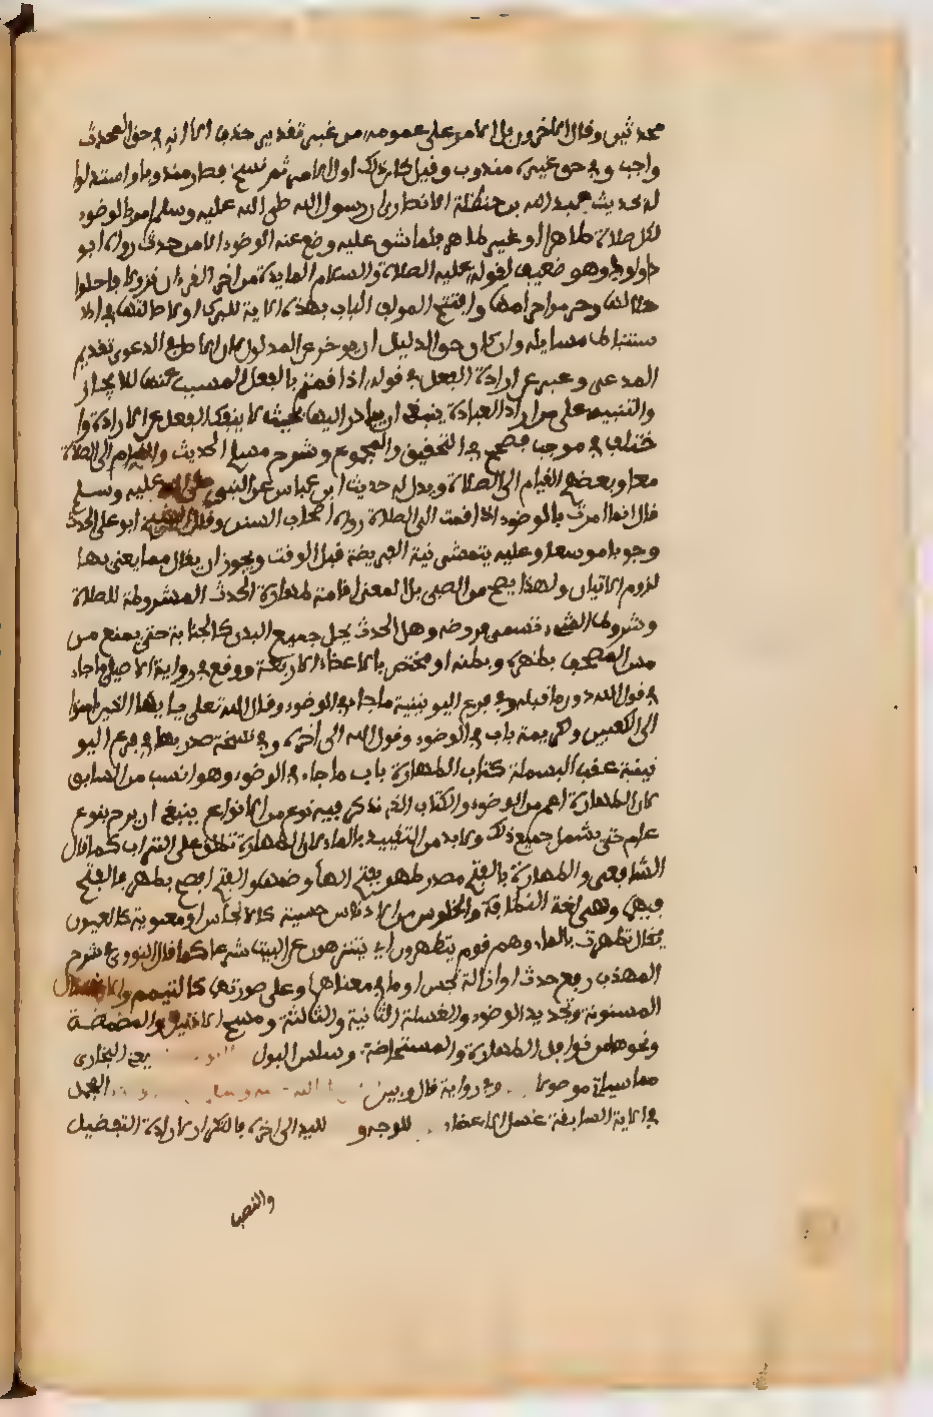 محدثين وقال الاخرون بل الامر على عمومه من غير تقدير حذف الا انه في حق المحدث
واجب وفي حق غيره مندوب وقيل كان ذلك اول الامر ثم نسخ فصار مندوبا واستدلوا
له بحديث عبد الله بن حنظلة الانصاري ان رسول الله صلى الله عليه وسلم امر بالوضوء
لكل صلاة طاهرا او غير طاهر فلما شق عليه وضع عنه الوضوء الا من حدث رواه ابو
داوود وهو ضعيف لقوله عليه الصلاة والسلام المايدة من اخر القرءان نزولا فاحلوا
حلالها وحرموا حرامها وافتتح المولف الباب بهذه الاية للتبرك او لاصالتها في
استنباط مسايله وان كان حق الدليل ان يوخر عن المدلول لان الاصل في الدعوى تقديم
المدعى وعبر عن ارادة الفعل في قوله اذا قمتم بالفعل المسبب عنها للايجاز
والتنبيه على من اراد العبادة ينبغي ان يبادر اليها بحيث لا ينفك الفعل عن الارادة وا
ختلف في موجب فصحح في التحقيق والمجموع وشرح مسلم الحدث والقيام الى الصلاة
معا وبعضهم القيام الى الصلاة ويدل له حديث ابن عباس عن النبي صلى الله عليه وسلم
قال انما امرت بالوضوء اذا قمت الى الصلاة رواه اصحاب السنن وقال الشيخ ابو علي الحدث
وجوبا موسعا وعليه يتمشى نية الفريضة قبل الوقت ويجوز ان يقال مما يعنى بها
لزوم الاتيان ولهذا يصح من الصبي بل المعنى اقامة طهارة الحدث المشروطة للصلاة
وشروط الشيء تسمى فروضه وهل الحدث يحل جميع البدن كالجنابة حتى يمنع من
مس المصحف بظهره وبطنه او مختص بالاعضاء الاربعة ووقع في رواية الاصيلي ما جاء
في قول الله دون ما قبله وفي فرع اليونينية ما جاء في الوضوء وقال الله تعالى يا ايها الذين امنوا
الى الكعبين ولكريمة باب في الوضوء وقول الله الى اخره وفي نسخة صدر بها في فرع اليو
نينية عقب البسملة كتاب الطهارة باب ما جاء في الوضوء وهو انسب من السابق
لان الطهارة اعم من الوضوء والكتاب الذي نذكر فيه نوع من الانواع ينبغي ان يترجم بنوع
عام حتى يشمل جميع ذلك ولا بد من التقييد بالماء لان الطهارة تطلق على التراب كما قال
الشافعي والطهارة بالفتح مصدر طهر بفتح الهاء وضمها والفتح افصح يطهر بالفتح
فيهما وهي لغة النظافة والخلوص من الادناس حسية كالانجاس او معنوية كالعيوب
يقال تطهرت بالماء وهم قوم يتطهرون اي يتنزهون عن العيب وشرعا كما قال النووي في شرح
المهذب رفع حدث او ازالة نجس او ما في معناهما وعلى صورتهما كالتيمم والاغتسال
المسنونة وتجديد الوضوء والغسلة الثانية والثالثة ومسح الاذنين والمضمضة
ونحوها من نوافل الطهارة والمستحاضة وسلس البول قال ابو عبد الله يعني البخاري
مما سياتي موصولا وفي رواية قال وبين النبي صلى الله عليه وسلم ان فرض الوضوء المجمل
في الاية السابقة غسل الاعضاء للوجه و لليد الى اخره بالتكرار لارادة التفصيل
والنصب